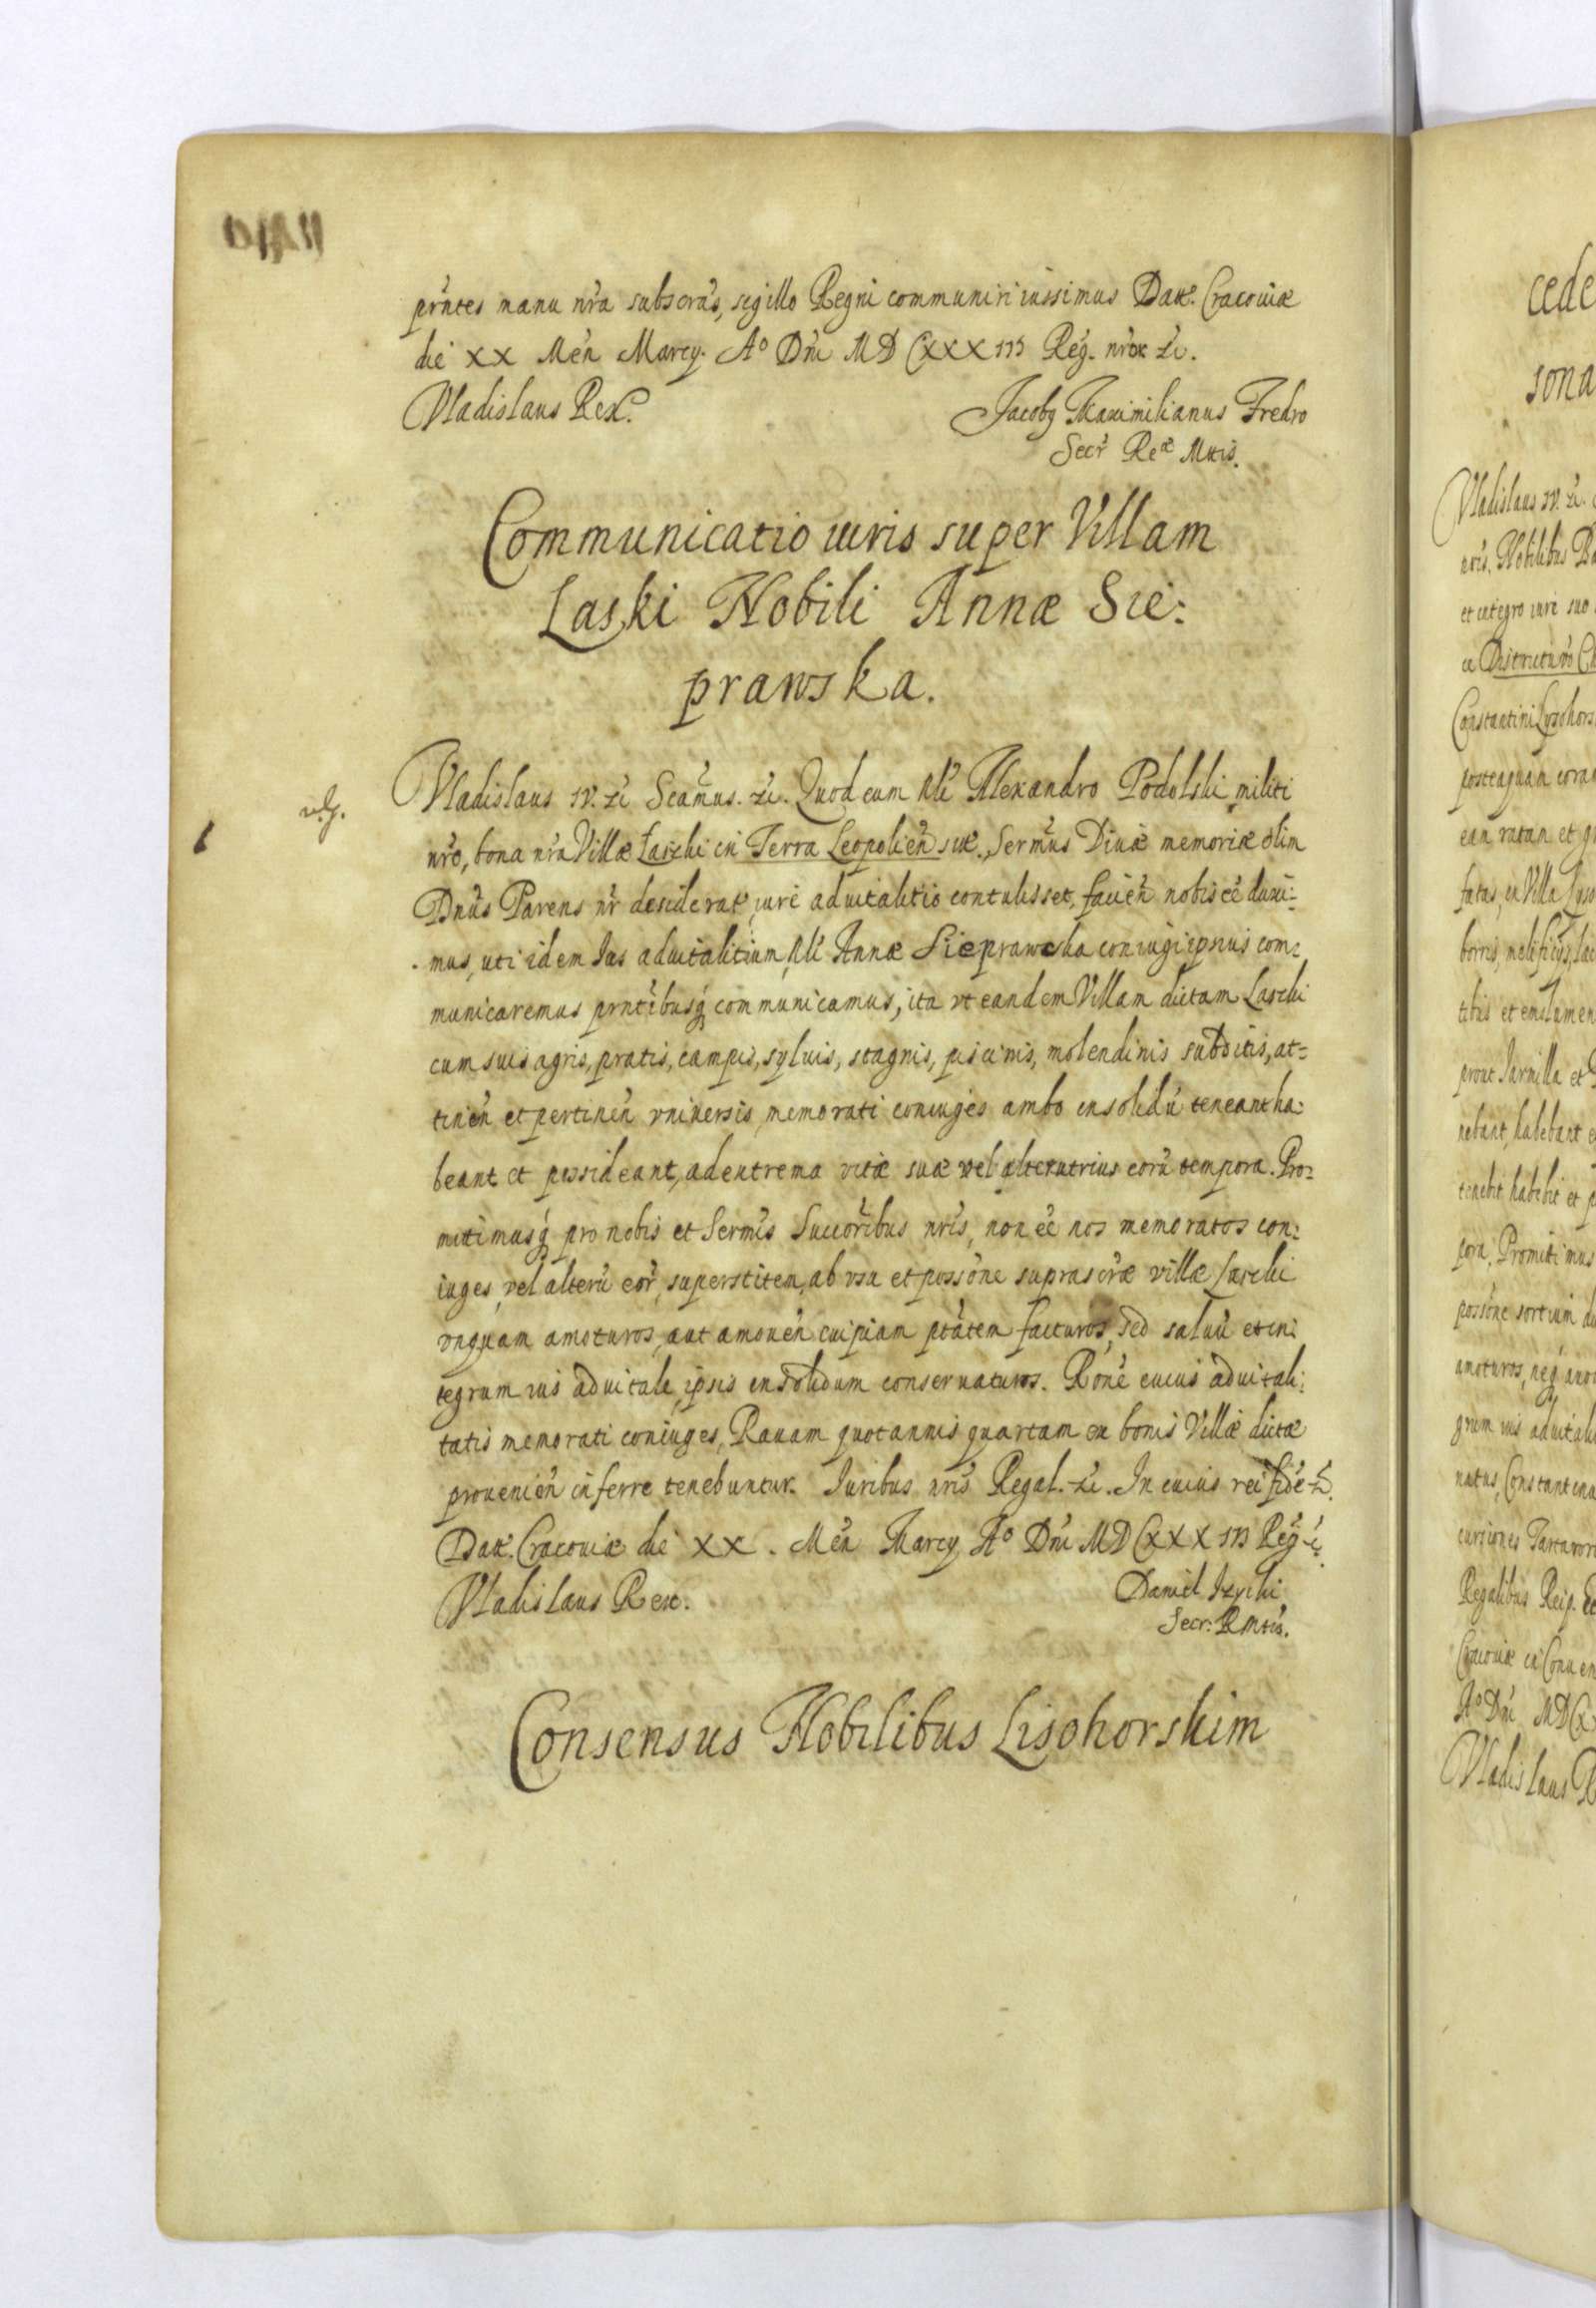 prntes manu nra subscras, sigillo Regni communiri iussimus Datt. Cracouiæ
die XX Men Marcy. Aº Dni MDCXXXIII Reg. nrox zc.
Vladislaus Rex.
Jacobg Maximilianus Fredro
Secr Reæ Mttis.
Communicatio iuris super Villam
Laski Nobili Annæ Sie:
prawska.
Vladislaus IV. zc Scamus. zc. Quod cum Nli Alexandro Podolski militi
nro, bona nra Villæ Laschi in Terra Leopolien sitæ. Sermus Diuæ memoriæ olim
Dnus Parens nr desiderat, iure aduitalitio contulisset, facien nobis ee duxi:
mus, uti idem Ius aduitalitium, Nli Annæ Sieprawska coniugi ipsius com:
municaremus prntibusq communicamus, ita vt eandem Villam dictam Laschi
cum suis agris, pratis, campis, syluis, stagnis, piscinis, molendinis subditis, at:
tinen et pertinen vniuersis, memorati coniuges ambo in solidu teneant ha:
beant et possideant, ad extrema vitæ suæ vel alterutrius eoru tempora. Pro:
mittimusq pro nobis et Sermis Succoribus nris, non ee nos memoratos con:
iuges, vel alteru eor, superstitem, ab vsu et possone suprascræ villæ Laschi
vnquam amoturos, aut amouen cuipiam ptatem facturos, sed saluu et in:
tegrum ius aduitale, ipsis in solidum conseruaturos. Rone cuius aduitali:
tatis memorati coniuges, Rauam quotannis quartam ex bonis Villæ dictæ
prouenien inferre tenebuntur. Iuribus nris Regal. zc. In cuius rei fide zc.
Datt. Cracouiæ die XX. Men Marcy Aº Dni MDCXXXIII Reg zc.
Vladislaus Rex.
Daniel Izychi
Secr: RMtis.
Consensus Nobilibus Lisohorskim
cede
sona
Vladislaus IV. zc.
nris, Nobilibus
et integro iure suo
Constantini Lysohors
posteaquam cora
ean ratam et
fatus, in Villa Lyso
borris, melificys,
tibus et emolumen
prout Iarmilla et
nebant, habebant
tenebit habebit et
pora. Promitimus
possone sortium
amoturos, neq
grum ius aduitali
natus, Constantina
cursiones Tartaror
Regalibus Reip.
Cracouiæ in Conuen
Aº Dni MDCX
Vladislaus R